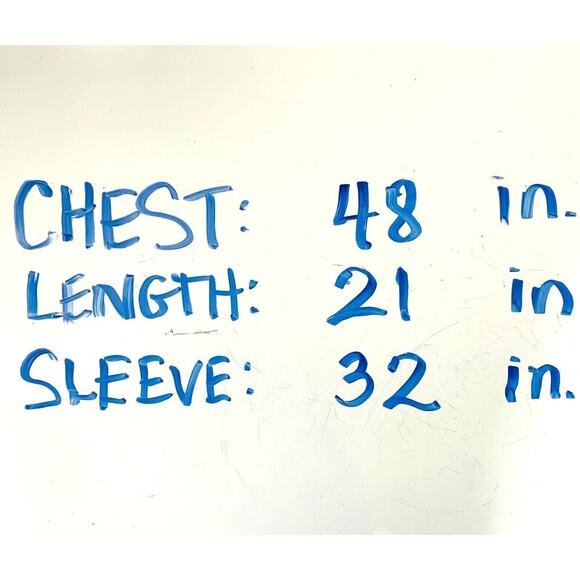 CHEST: 48 in.
LENGTH: 21 in
SLEEVE: 32 in.